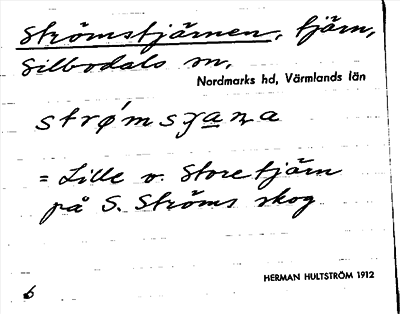 Strömstjärnen, tjärn,
Silbodals sn,
Nordmarks hd, Värmlands län
strø´msɟana
= Lille o. Store tjärn
på S. Ströms skog
HERMAN HULTSTRÖM 1912
6